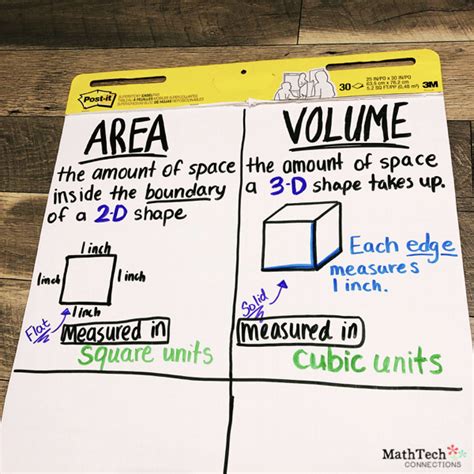 Post-it
30
25 IN/PO x 30 IN/PO
3M
AREA
the amount of space
inside the boundary
of a 2-D shape
1 inch
1 inch
1 inch
1 inch
Flat
Measured in
square units
VOLUME
the amount of space
a 3-D shape takes up.
Each edge
measures
1 inch.
Solid
measured in
cubic units
MathTech
CONNECTIONS